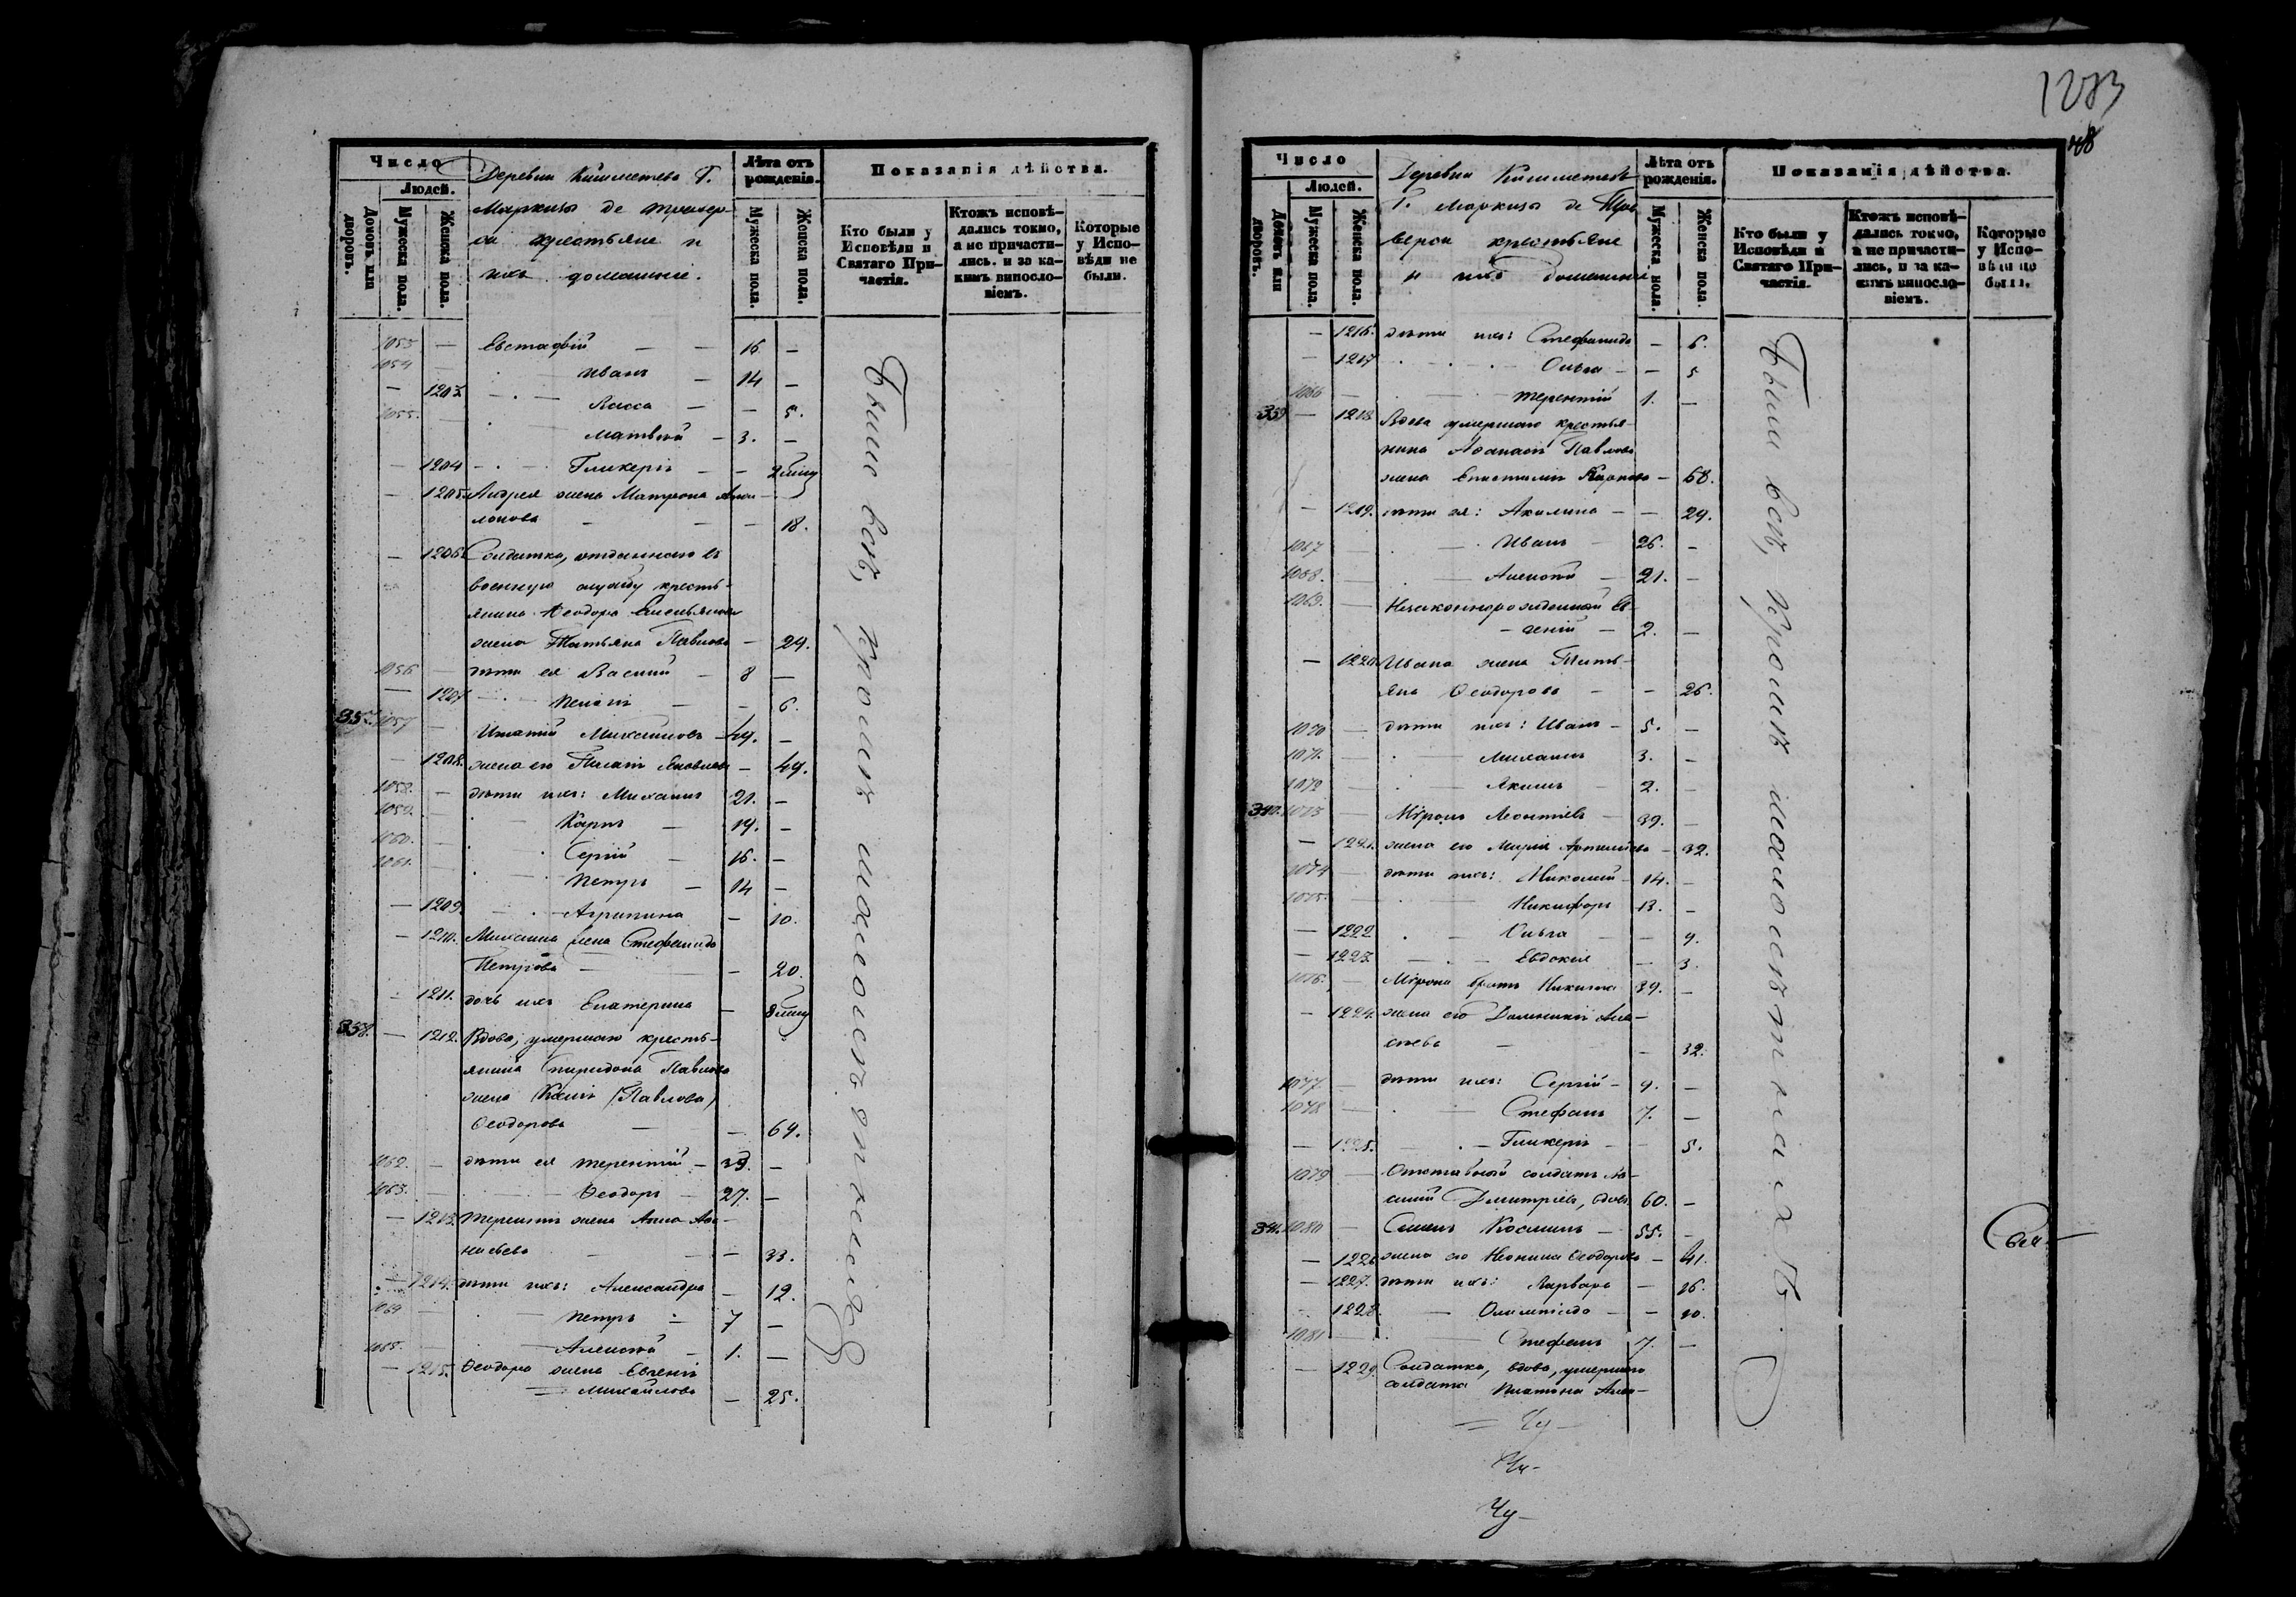 Число
Людей.
Домовъ или дворовъ.
Мужеска пола.
Женска пола.
Деревни Кишметева Г.
Маркизы де Травер-
са крестьяне и
ихъ домашніе.
Лѣта отъ рожденія.
Мужеска пола.
Женска пола.
Показанія дѣйства.
Кто были у Исповѣди и Святаго Причастія.
Ктожъ исповѣ-
дались токмо,
а не причасти-
лись, и за ка-
кимъ винословіемъ.
Которые
у Испо-
вѣди не
были.
1053 — Евстафій — — 16 —
1054 Иванъ — 14 —
— 1203 Васса — — 5.
1055. Матвѣй — 3. —
— 1204 Гликерія — —
— 1205 Андрея жена Матрона
— — 18.
— 1206 Солдатка, отданнаго въ
военную службу кресть-
янина Ѳеодора Емельянова
жена Татьяна Павлова — 29.
1056 — дѣти ея Василій — 8 —
— 1207 — — 6.
357 1057 — Игнатій Михайловъ — 49. —
— 1208. жена его Яковлева — 49.
1058. — дѣти ихъ: Михаилъ 21. —
1059. Карпъ — 19. —
1060. Сергій — 16. —
1061. Петръ — 14 —
— 1209. Агрипина — 10.
— 1210. Михаила жена Стефанида
Петрова — — 20.
— 1211. дочь ихъ Екатерина —
358. — 1212. Вдова, умершаго кресть-
янина Спиридона Павлова
жена Ксенія (Павлова)
Ѳеодорова — — 64.
1062. — дѣти ея Терентій — 33. —
1063. Ѳеодоръ — 27. —
— 1213. Терентія жена Анна
— — 33.
— 1214. дѣти ихъ: Александра — 12.
1064 — Петръ — 7 —
1065. Алексѣй — 1. —
— 1215. Ѳеодора жена Евгенія
Михайлова — 25.
Были всѣ, кромѣ малолѣтнихъ
1283
Число
Людей.
Домовъ или дворовъ.
Мужеска пола.
Женска пола.
Деревни Кишметева
Г. Маркизы де Тра
верса крестьяне
и ихъ домашніе
Лѣта отъ рожденія.
Мужеска пола.
Женска пола.
Показанія дѣйства.
Кто были у
Исповѣди и
Святаго При-
частія.
Ктожъ исповѣ-
дались токмо,
а не причасти-
лись, и за ка-
кимъ винословіемъ.
Которые
у Испо-
вѣди не
были.
— 1216. дѣти ихъ: Стефанида — 6.
— 1217 Ольга — — 5
1066 Терентій 1. —
339 — 1218 Вдова умершаго крестья-
нина Аѳанасія Павлова
жена Епистимія Карпова — 68.
— 1219. дѣти ея: Акилина — — 29.
1067 Иванъ 26. —
1068. Алексѣй — 21. —
1069. Незаконнорожденный Ев-
геній — 2. —
— 1220 Ивана жена Тать-
яна Ѳеодорова — — 26.
1070 — дѣти ихъ: Иванъ — 5. —
1071. Михаилъ 3. —
1072 Якимъ — 2. —
340. 1073 Міронъ Леонтіевъ — 39. —
— 1221. жена его Марія Артемьева — 32.
1074 дѣти ихъ: Николай — 14. —
1075. Никифоръ 13. —
— 1222 Ольга — 9.
— 1223. Евдокія — 3.
1076. Мірона братъ Никита 39. —
— 1224. жена его Домникія Але-
ксѣева — — 32.
1077. дѣти ихъ: Сергій — 9. —
1078 Стефанъ 7. —
— 1225. Гликерія — — 5.
1079 — Отставной солдатъ Ва-
силій Дмитріевъ, вдовъ 60. —
341. 1080 — Семенъ Косминъ — 55. —
— 1226 жена его Неонила Ѳеодорова — 41.
— 1227. дѣти ихъ: Варвара — 16.
— 1228. Олимпіада — — 10.
1081 Стефанъ 7. —
— 1229. Солдатка, вдова, умершаго
солдата Платона Але-
Были всѣ, кромѣ малолѣтнихъ